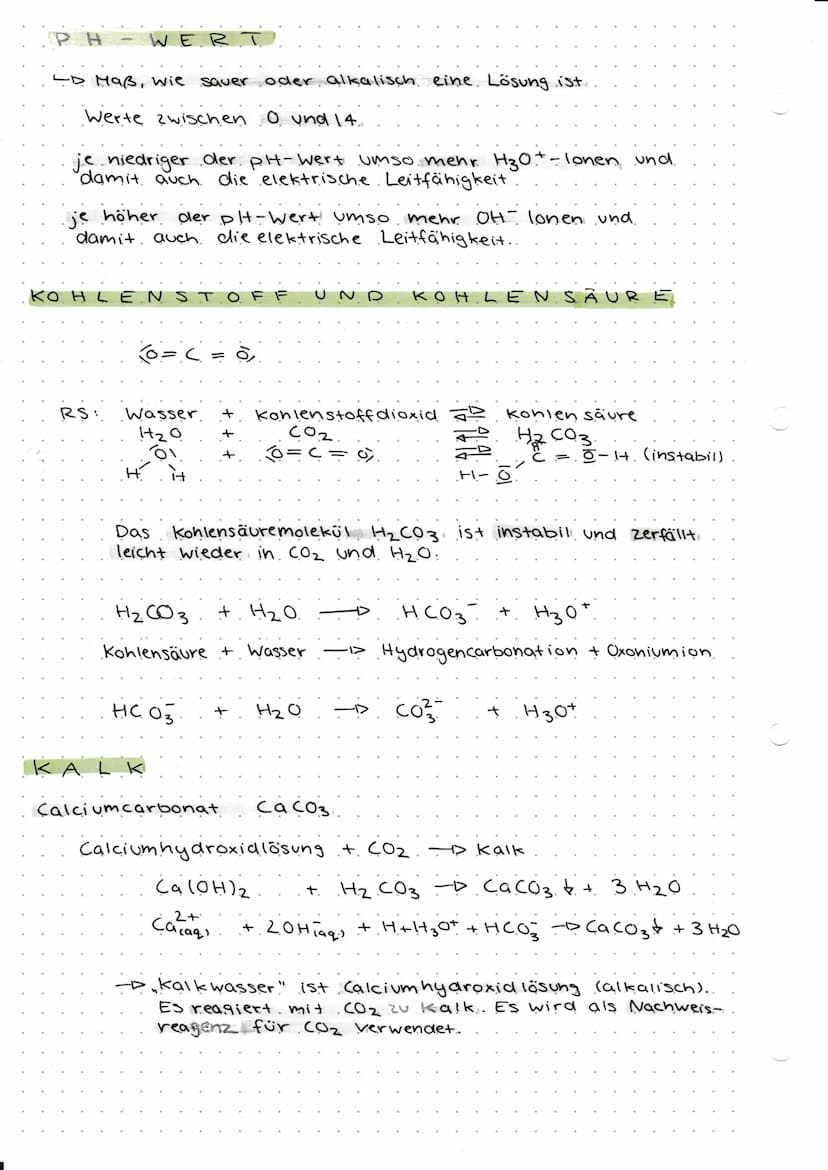 PH-WERT
↳ Maß, wie sauer oder alkalisch eine Lösung ist
Werte zwischen 0 und 14
je niedriger der pH-Wert umso mehr H₃O⁺-Ionen und
damit auch die elektrische Leitfähigkeit
je höher der pH-Wert umso mehr OH⁻ Ionen und
damit auch die elektrische Leitfähigkeit.
KOHLENSTOFF UND KOHLENSÄURE
O = C = O
RS: Wasser + Kohlenstoffdioxid ⇌ Kohlensäure
H₂O + CO₂ ⇌ H₂CO₃
O + O = C = O ⇌ C = O - H (instabil)
H H H - O
Das Kohlensäuremolekül H₂CO₃ ist instabil und zerfällt
leicht wieder in CO₂ und H₂O.
H₂CO₃ + H₂O → HCO₃⁻ + H₃O⁺
Kohlensäure + Wasser → Hydrogencarbonation + Oxoniumion
HCO₃⁻ + H₂O → CO₃²⁻ + H₃O⁺
KALK
Calciumcarbonat CaCO₃
Calciumhydroxidlösung + CO₂ → Kalk
Ca(OH)₂ + H₂CO₃ → CaCO₃↓ + 3 H₂O
Ca²⁺(aq) + 2OH⁻(aq) + H+H₃O⁺ + HCO₃⁻ → CaCO₃↓ + 3H₂O
→ „Kalkwasser" ist Calciumhydroxidlösung (alkalisch).
Es reagiert mit CO₂ zu Kalk. Es wird als Nachweis-
reagenz für CO₂ verwendet.